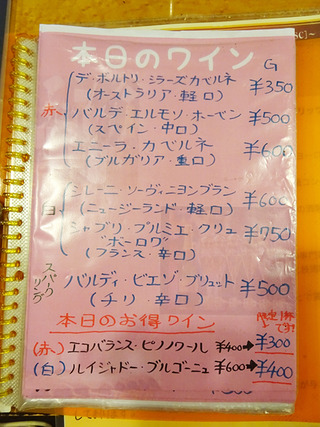 本日のワイン
G
赤
デ・ボルトリ・シラーズカベルネ ¥350
(オーストラリア・軽口)
バルデ・エルモソ・ホーベン ¥500
(スペイン・中口)
エニーラ・カベルネ ¥600
(ブルガリア・重口)
白
シレーニ・ソーヴィニヨンブラン ¥600
(ニュージーランド・軽口)
シャブリ・プルミエ・クリュ ¥750
"ボーロワ"
(フランス・辛口)
スパークリング
バルディ・ビエソ・ブリュット ¥500
(チリ・辛口)
本日のお得ワイン
(赤) エコバランス・ピノノワール ¥400→¥300
(白) ルイジャドー・ブルゴーニュ ¥600→¥400